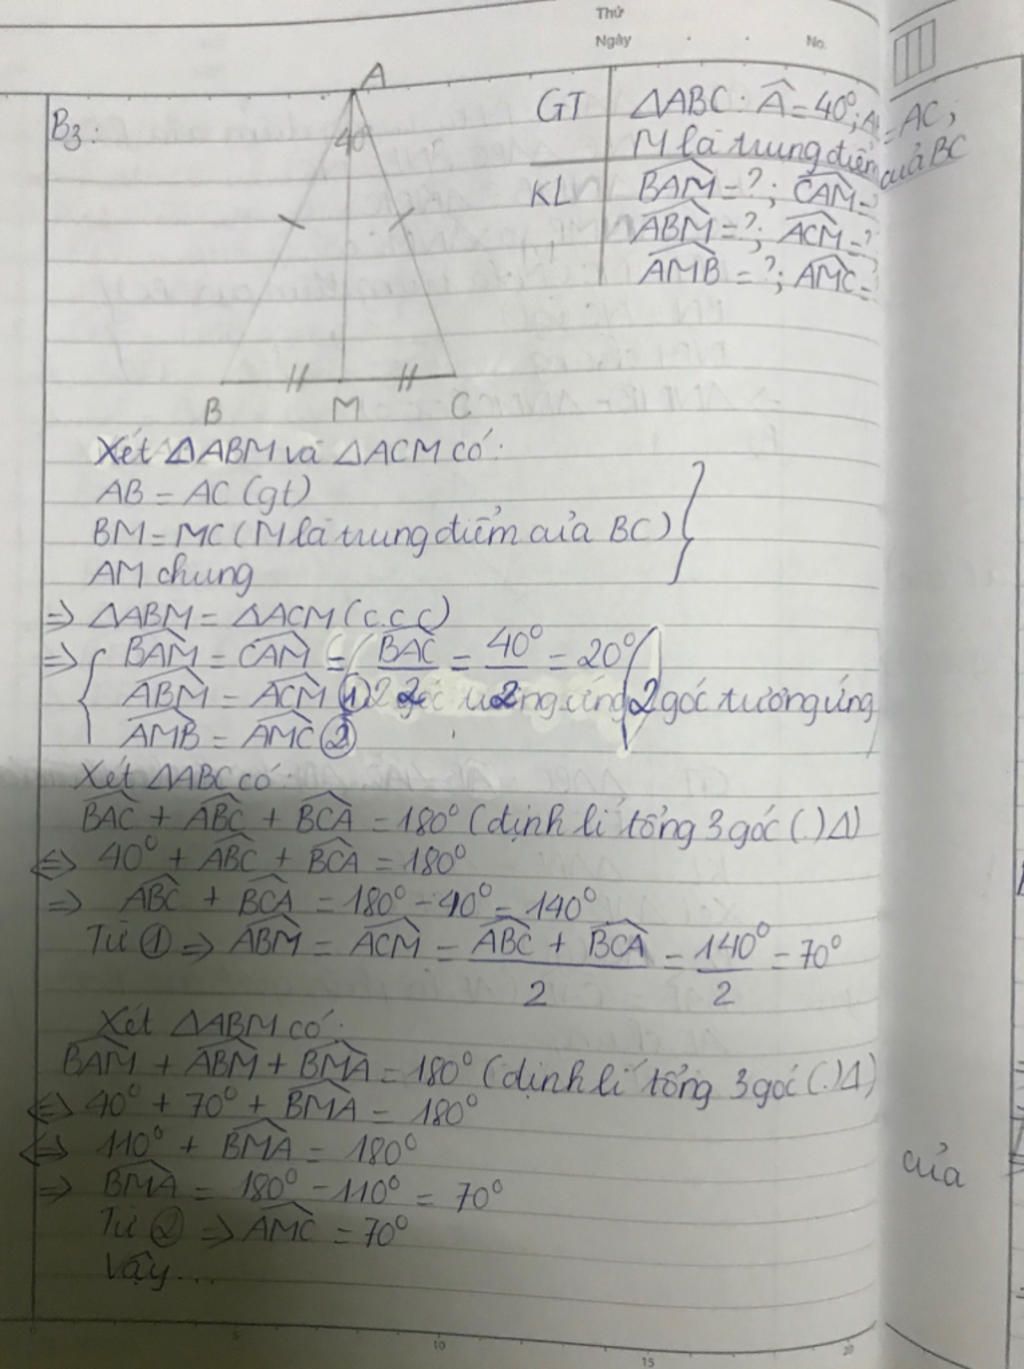 Thứ
Ngày
No.
B3:
A
40°
B M C
GT ΔABC: Â = 40°; A = AC;
M là trung điểm của BC
KL BAM̂ = ?; CAM̂ = ?
ABM̂ = ?; ACM̂ = ?
AMB̂ = ?; AMĈ = ?
Xét ΔABM và ΔACM có:
AB = AC (gt)
BM = MC (M là trung điểm của BC)
AM chung
=> ΔABM = ΔACM (c.c.c)
=> BAM̂ = CAM̂ = BAĈ/2 = 40°/2 = 20°
ABM̂ = ACM̂ ① 2 góc tương ứng
AMB̂ = AMĈ ②
Xét ΔABC có:
BAĈ + ABĈ + BCÂ = 180° (định lí tổng 3 góc (.) Δ)
<=> 40° + ABĈ + BCÂ = 180°
=> ABĈ + BCÂ = 180° - 40° = 140°
Từ ① => ABM̂ = ACM̂ = (ABĈ + BCÂ)/2 = 140°/2 = 70°
Xét ΔABM có:
BAM̂ + ABM̂ + BMÂ = 180° (định lí tổng 3 góc (.) Δ)
<=> 40° + 70° + BMÂ = 180°
<=> 110° + BMÂ = 180°
=> BMÂ = 180° - 110° = 70°
Từ ② => AMĈ = 70°
Vậy...
của
5 10 15 20